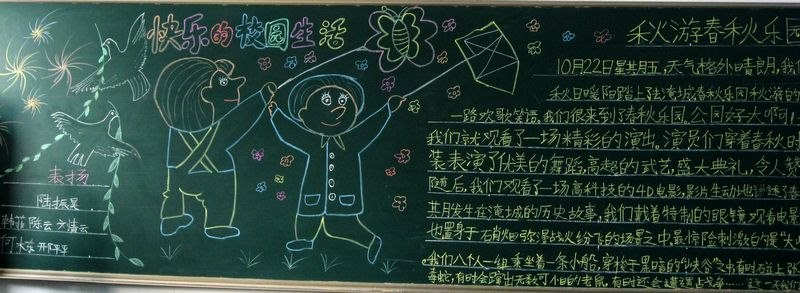 快乐的校园生活
表扬
陆振昊
陈云 文倩云
秋游春秋乐园
10月22日星期五，天气格外晴朗，我们
秋日暖阳踏上淹城春秋乐园秋游的
一路欢歌笑语，我们很来到了春秋乐园，公园好大啊！
我们就观看了一场精彩的演出。演员们穿着春秋的
装表演了优美的舞蹈，高超的武艺，盛大典礼，令人赞
随后，我们观看了一场高科技的4D电影，影片生动地讲述了春
其月发生在淹城的历史故事，我们戴着特制的眼镜观看电景
也置身于石肖火田弥漫战火纷飞的场景之中，最惊险刺激的是"
我们八个人一组，乘坐着一条小船，穿梭于黑暗的"峡谷"之中，有时
毒蛇，有时会蹿出无数可怕的老鼠，有时还会遭遇